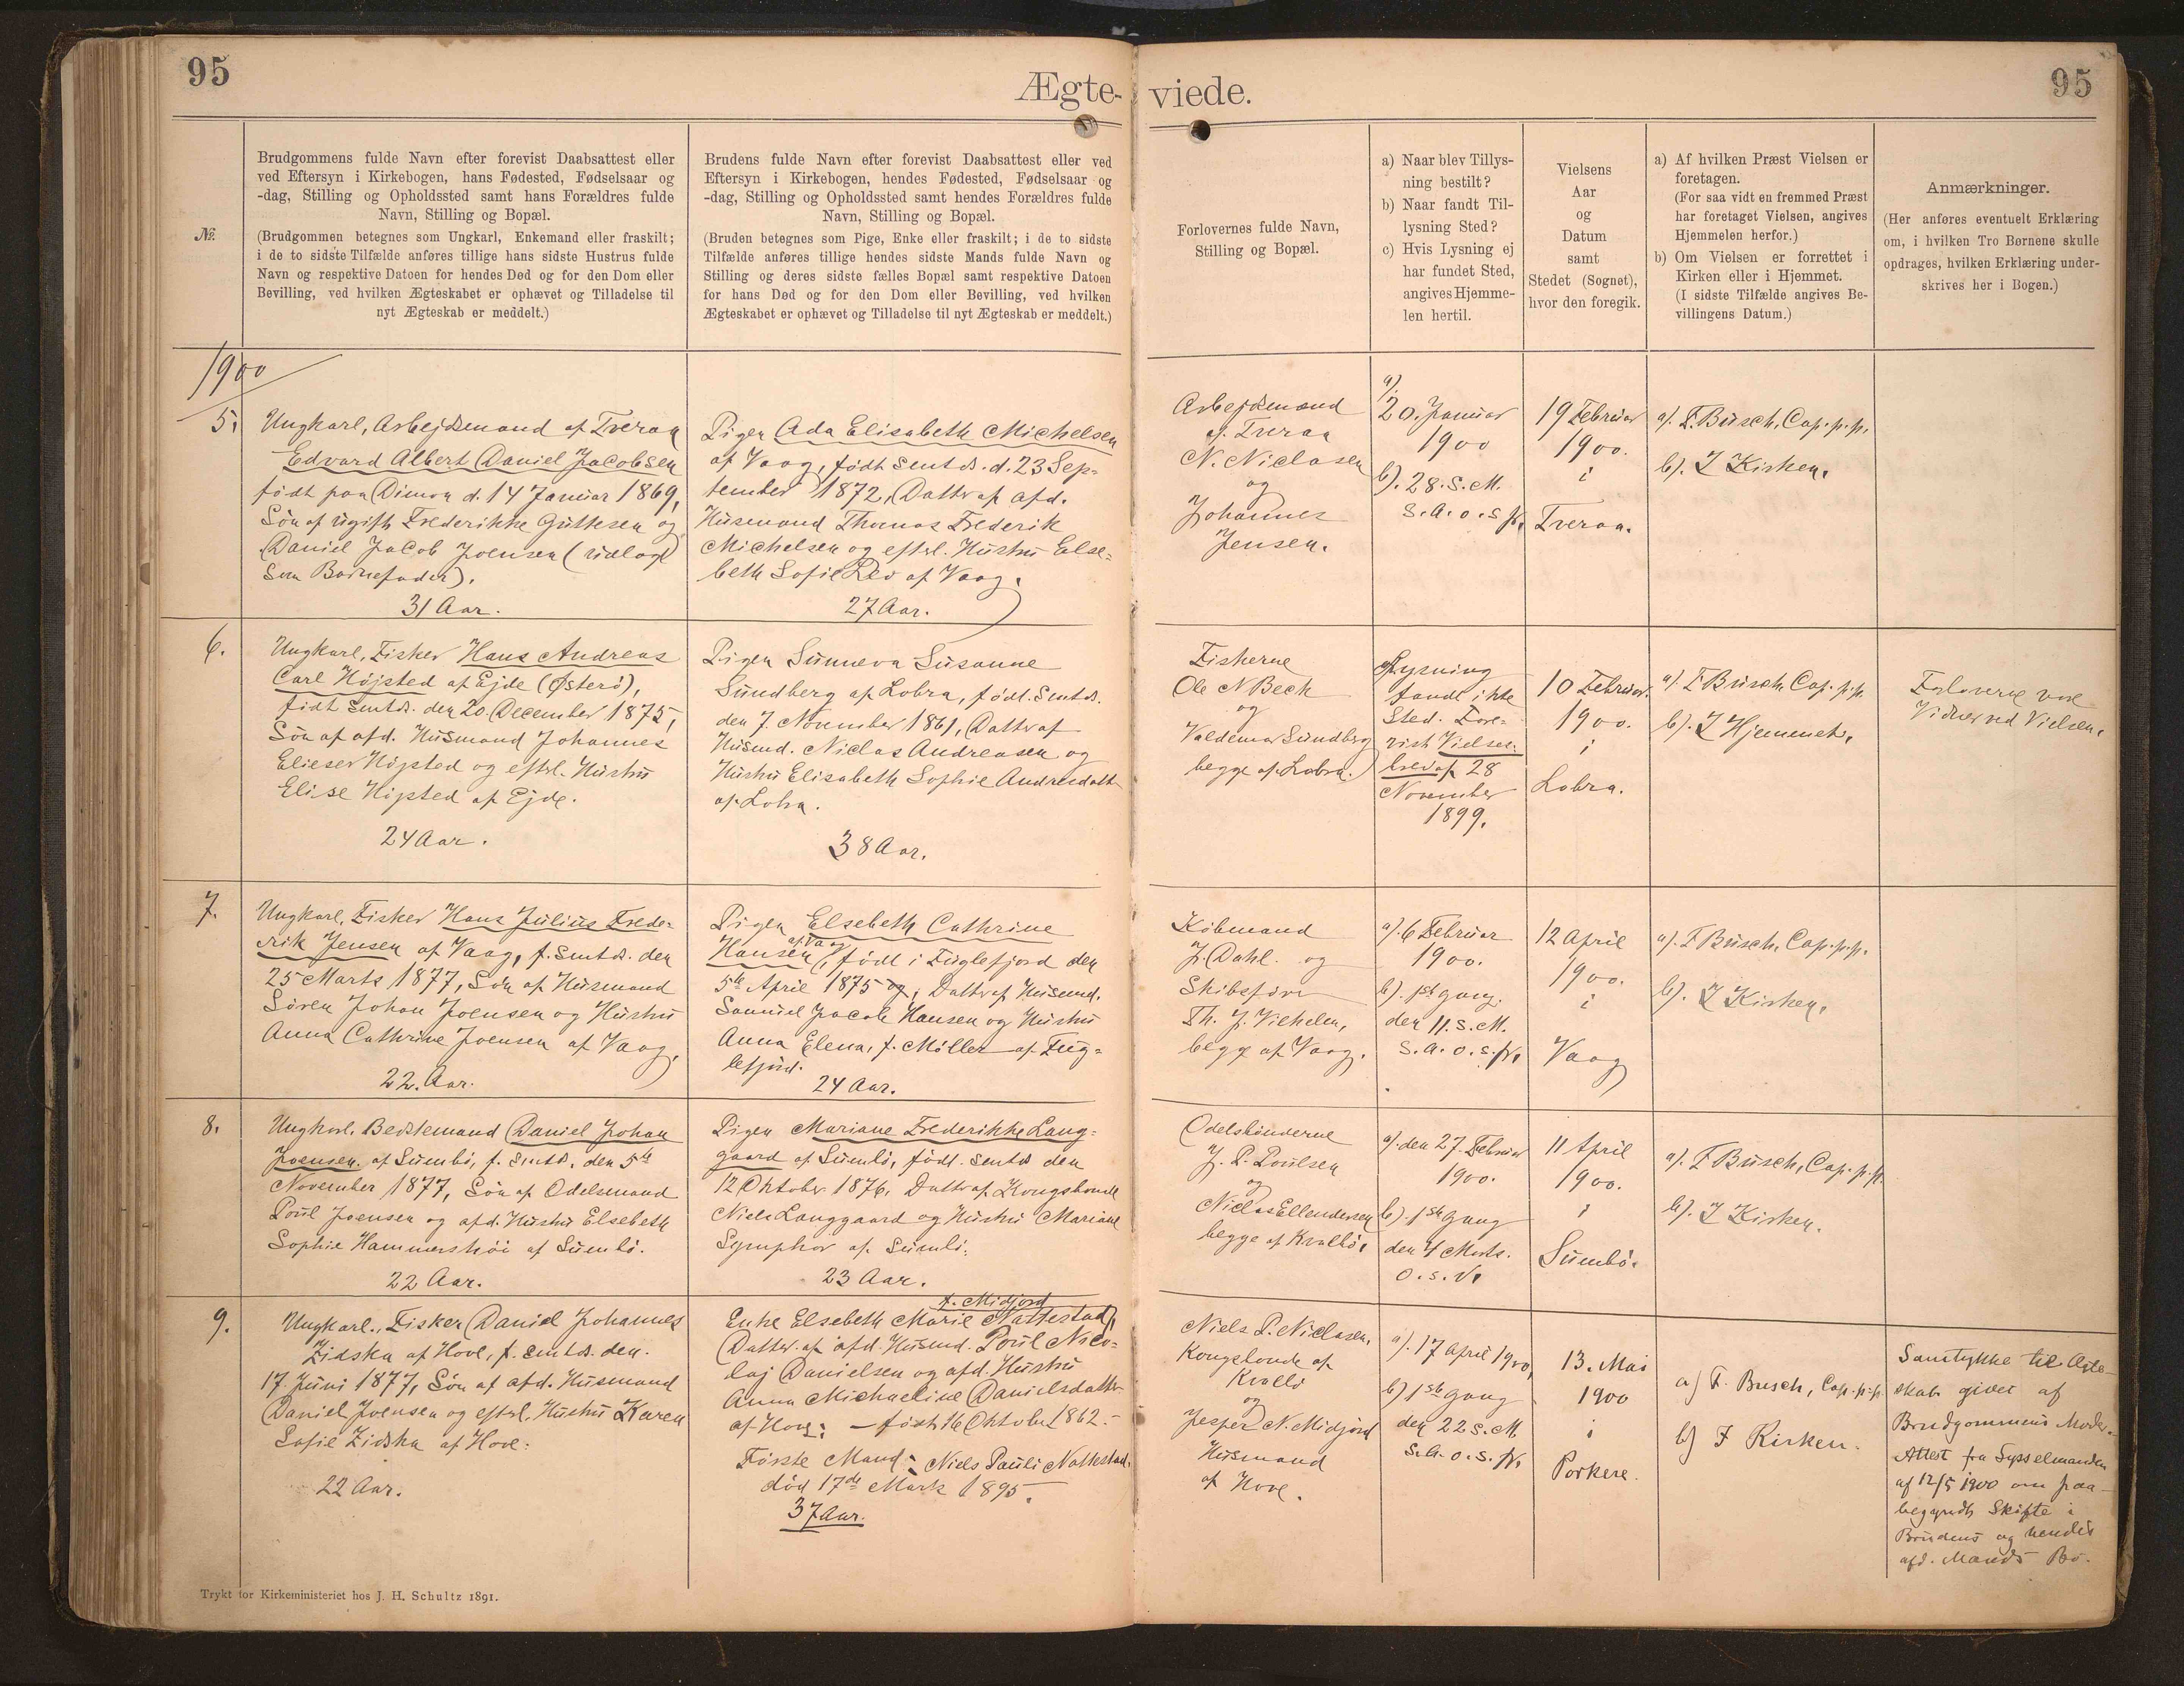 95
Ægte-
viede.
95
№
Brudgommens fulde Navn efter forevist Daabsattest eller
ved Eftersyn i Kirkebogen, hans Fødested, Fødselsaar og
-dag, Stilling og Opholdssted samt hans Forældres fulde
Navn, Stilling og Bopæl.
(Brudgommen betegnes som Ungkarl, Enkemand eller fraskilt;
i de to sidste Tilfælde anføres tillige hans sidste Hustrus fulde
Navn og respektive Datoen for hendes Død og for den Dom eller
Bevilling, ved hvilken Ægteskabet er ophævet og Tilladelse til
nyt Ægteskab er meddelt.)
Brudens fulde Navn efter forevist Daabsattest eller ved
Eftersyn i Kirkebogen, hendes Fødested, Fødselsaar og
-dag, Stilling og Opholdssted samt hendes Forældres fulde
Navn, Stilling og Bopæl.
(Bruden betegnes som Pige, Enke eller fraskilt; i de to sidste
Tilfælde anføres tillige hendes sidste Mands fulde Navn og
Stilling og deres sidste fælles Bopæl samt respektive Datoen
for hans Død og for den Dom eller Bevilling, ved hvilken
Ægteskabet er ophævet og Tilladelse til nyt Ægteskab er meddelt.)
Forlovernes fulde Navn,
Stilling og Bopæl.
a) Naar blev Tillys-
ning bestilt?
b) Naar fandt Til-
lysning Sted?
c) Hvis Lysning ej
har fundet Sted,
angives Hjemme-
len hertil.
Vielsens
Aar
og
Datum
samt
Stedet (Sognet),
hvor den foregik.
a) Af hvilken Præst Vielsen er
foretagen.
(For saa vidt en fremmed Præst
har foretaget Vielsen, angives
Hjemmelen herfor.)
b) Om Vielsen er forrettet i
Kirken eller i Hjemmet.
(I sidste Tilfælde angives Be-
villingens Datum.)
Anmærkninger.
(Her anføres eventuelt Erklæring
om, i hvilken Tro Børnene skulle
opdrages, hvilken Erklæring under-
skrives her i Bogen.)
1900
5.
Ungkarl, Arbejdsmand af Tveraa
Edvard Albert Daniel Jacobsen
født paa Dimon d. 14 Januar 1869,
Søn af ugift Frederikke Guttesen og
Daniel Jacob Joensen (udlagt
som Barnefader).
31 Aar.
Pigen Ada Elisabeth Michelsen
af Vaag, født smtds. d. 23 Sep-
tember 1872, Datter af afd.
Husmand Thomas Frederik
Michelsen og efterl. Hustru Else-
beth Sofie af Vaag.
27 Aar.
Arbejdsmænd
af Tveraa
N. Niclasen
og
Johannes
Jensen.
a).
20. Januar
1900
b). 28. s. M.
s. A. o. s. v.
19 Februar
1900.
i
Tveraa.
a). F. Busch, Cap. p. p.
b). I Kirken.
6.
Ungkarl, Fisker Hans Andreas
Carl Højsted af Ejde (Østerø),
født smtds. den 20. December 1875,
Søn af afd. Husmand Johannes
Elieser Højsted og efterl. Hustru
Elise Højsted af Ejde.
24 Aar.
Pigen Sunneva Susanne
Sundberg af Lobra, født smtds.
den 7. November 1861, Datter af
Husmd. Niclas Andreasen og
Hustru Elisabeth Sophie Andreasdatt.
af Lobra.
38 Aar.
Fiskerne
Ole N Beck
og
Valdemar Sundberg
begge af Lobra.
c). Lysning
fandt ikke
Sted. Fore-
vist Vielses-
brev af 28
November
1899.
10 Februar
1900.
i
Lobra.
a). F Busch, Cap. p. p.
b). I Hjemmet.
Forloverne vare
Vidner ved Vielsen.
7.
Ungkarl, Fisker Hans Julius Frede-
rik Jensen af Vaag, f. smtds. den
25 Marts 1877, Søn af Husmand
Søren Johan Joensen og Hustru
Anna Cathrine Joensen af Vaag.
22. Aar.
Pigen Elsebeth Cathrine
af Vaag
Hansen, født i Fuglefjord den
5te April 1875 og, Datter af Husmd.
Samuel Jacob Hansen og Hustru
Anna Elena, f. Møller af Fug-
lefjord.
24 Aar.
Købmand
J. Dahl. og
Skibsfører
Th. J. Vilhelm,
begge af Vaag.
a). 6 Februar
1900.
b). 1st gang.
den 11. s. M.
s. A. o. s. v.
12 April
1900.
i
Vaag
a). F Busch, Cap. p. p.
b). I Kirken.
8.
Ungkarl. Bedstemand Daniel Johan
Joensen. af Sumbø, f. smtds. den 5te
November 1877, Søn af Odelsmand
Poul Joensen og afd. Hustru Elsebeth
Sophie Hammershøi af Sumbø.
22 Aar.
Pigen Mariane Frederikke Lang-
gaard af Sumbø, født. smtds den
12 Oktober 1876, Datter af Kongsbonde
Niels Langgaard og Hustru Mariane
Symphor af Sumbø.
23 Aar.
Odelsbønderne
J. P. Poulsen
og
Niclas Ellendersen
begge af Kvalbø.
a). den 27. Februar
1900.
b). 1st Gang
den 4 Marts.
o. s. v.
11 April
1900.
i
Sumbø.
a). F Busch, Cap. p. p.
b). I Kirken.
9.
Ungkarl., Fisker Daniel Johannes
Zidska af Hove, f. smtds. den.
17. Juni 1877, Søn af afd. Husmand
Daniel Joensen og efterl. Hustru Karen
Sofie Zidska af Hove.
22 Aar.
f. Midjord
Enke Elsebeth Marie Nattestad,
Datter. af afd. Husmd. Poul Nico-
laj Danielsen og afd. Hustru
Anna Michaeline Danielsdatter
af Hove: — født 16 Oktober 1862. -
Første Mand: Niels Pauli Nattestad.
død 17de Marts 1895.
37 Aar.
Niels P. Niclasen.
Kongsbonde af
Kvalbø
og
Jesper N. Midjord
Husmand
af Hove.
a). 17 April 1900,
b) 1st Gang
den 22 s. M.
s. A. o. s. v.
13. Mai
1900
i
Porkere.
a) F. Busch, Cap. p. p.
b) I Kirken.
Samtykke til Ægte-
skab givet af
Brudgommens Moder.
Attest fra Sysselmanden
af 12/5 1900 om paa-
begyndt Skifte i
Brudens og hendes
afd. Mands Bo.
Trykt for Kirkeministeriet hos J. H. Schultz 1891.